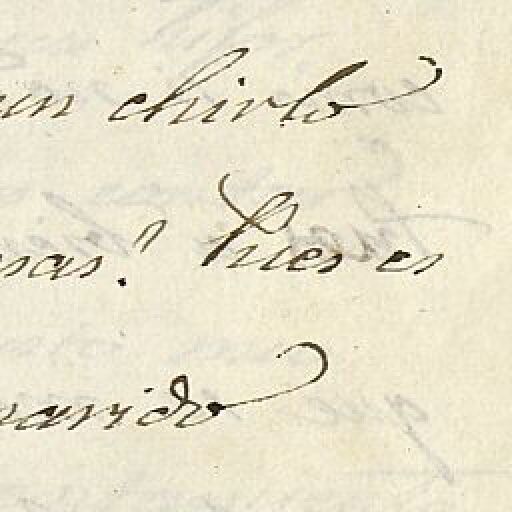 un chirlo
sas? Pues es
marido